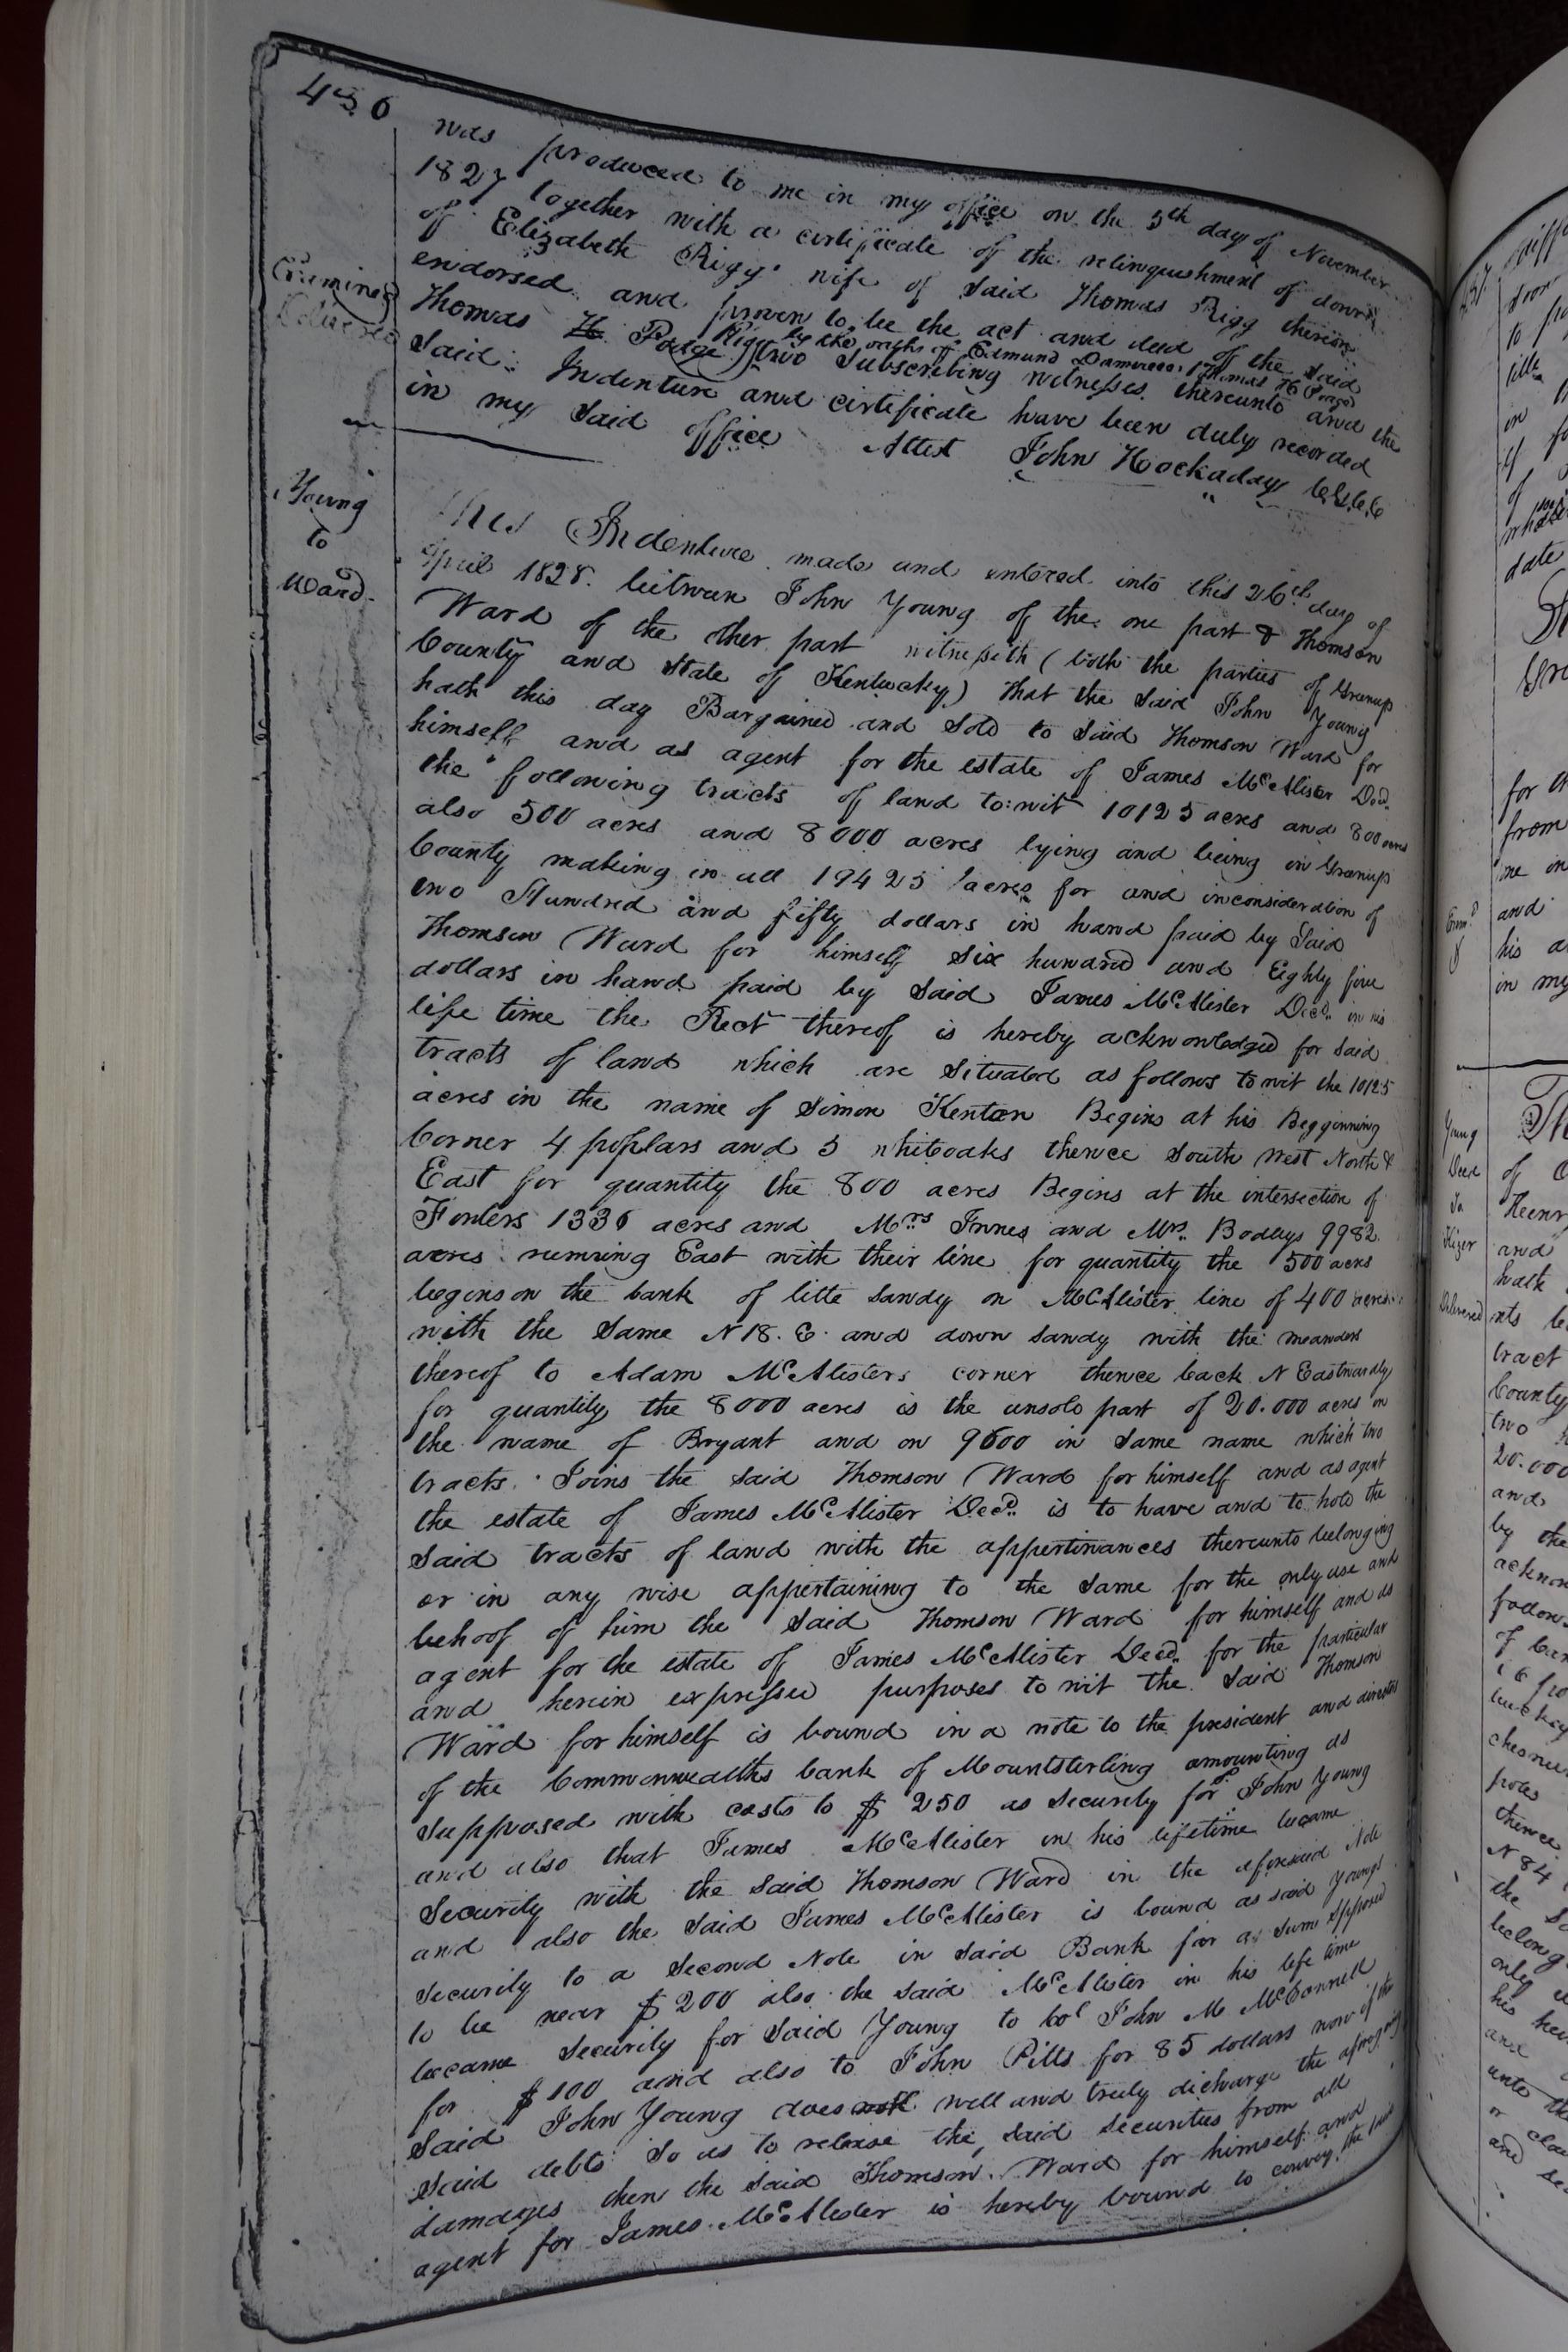 436
was produced to me in my office on the 5th day of November
1827 together with a certificate of the relinquishment of dower
of Elizabeth Rigg wife of said Thomas Rigg thereon
endorsed and proven to be the act and deed of the said
Rigg by the oaths of Edmund Damereal Thomas H Poage
Thomas H. Poage two Subscribing witnesses thereunto and the
Said Indenture and certificate have been duly recorded
in my Said office Attest John Hockaday C.G.C.C
Examined
Delivered
Young
to
Ward.
This Indenture made and entered into this 26th day of
April 1828. between John Young of the one part & Thomson
Ward of the other part witnesseth (both the parties of Greenup
County and State of Kentucky) that the Said John Young
hath this day Bargained and Sold to Said Thomson Ward for
himself and as agent for the estate of James McAlister Decd.
the following tracts of land to:wit 10125 acres and 800 acres
also 500 acres and 8000 acres lying and being in Greenup
County making in all 19425 acres for and inconsideration of
two Hundred and fifty dollars in hand paid by Said
Thomson Ward for himself Six hundred and Eighty five
dollars in hand paid by Said James McAlister Decd. in his
life time the Rect thereof is hereby acknowledged for Said
tracts of land which are Situated as follows to wit the 10125
acres in the name of Simon Kenton Begins at his Beggonning
Corner 4 poplars and 3 whiteoaks thence South West North &
East for quantity the 800 acres Begins at the intersection of
Fowlers 1336 acres and Mrs Innes and Mrs. Bodleys 9982
acres running East with their line for quantity the 500 acres
begins on the bank of litte Sandy on McAlister line of 400 acres
with the Same N 18. E. and down Sandy with the meanders
thereof to Adam McAlisters corner thence back N Eastwardly
for quantity the 8000 acres is the unsold part of 20.000 acres in
the name of Bryant and on 9600 in Same name which two
tracts. Joins the Said Thomson Ward for himself and as agent
the estate of James McAlister Decd. is to have and to hold the
Said tracts of land with the appertinances thereunto belonging
or in any wise appertaining to the Same for the only use and
behoof of him the Said Thomson Ward for himself and as
agent for the estate of James McAlister Decd. for the particular
and herein expressed purposes to wit the Said Thomson
Ward for himself is bound in a note to the president and directors
of the Commonwealths bank of Mountsterling amounting as
Supposed with costs to $250 as Security for sd John Young
and also that James McAlister in his lifetime became
Security with the Said Thomson Ward in the aforesaid Note
and also the Said James McAlister is bound as said Youngs
Security to a Second Note in Said Bank for a sum Spposed
to be near $200 also the Said McAlister in his life time
became Security for Said Young to Col John M McConnell
for $100 and also to John Pitts for 85 dollars now if the
Said John Young does well and truly discharge the aforegoing
Said debts So as to release the Said Securities from all
damages then the Said Thomson Ward for himself and
agent for James McAlister is hereby bound to convey the said
for th
from
me in
and
his a
in my
Young
Deed
To
Kizer
Delivered
of
Henr
and
hath
tract
County
two
20.000
and
by the
N 84
the
belong
only
his hei
and
unto the